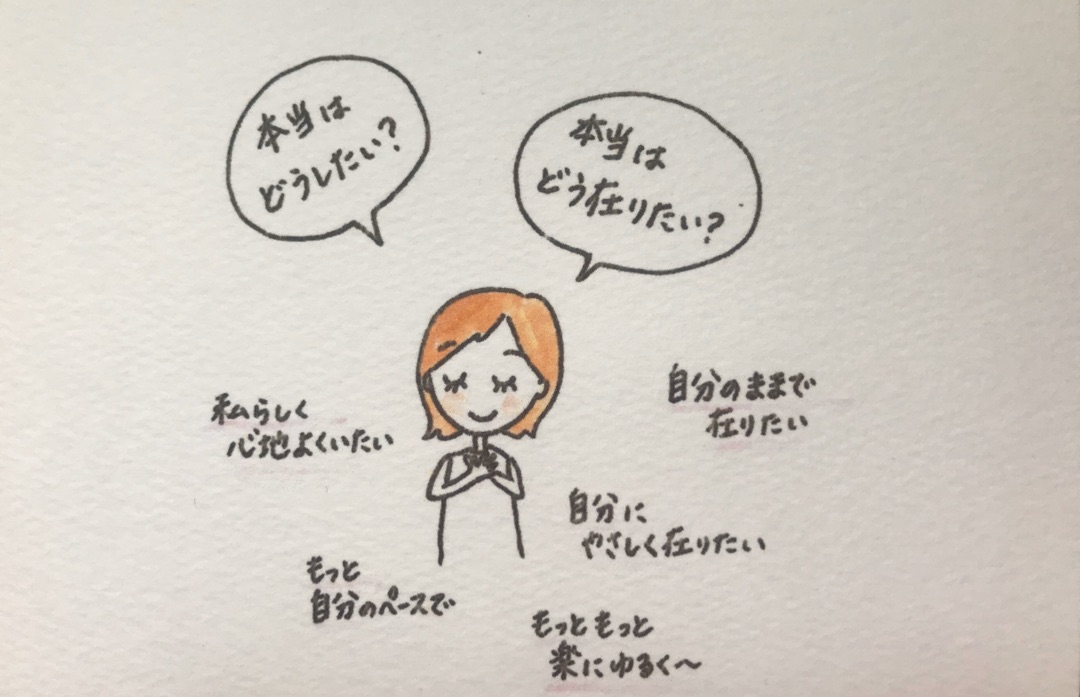 本当は
どうしたい?
本当は
どう在りたい?
私らしく
心地よくいたい
自分のままで
在りたい
自分に
やさしく在りたい
もっと
自分のペースで
もっともっと
楽にゆるく〜